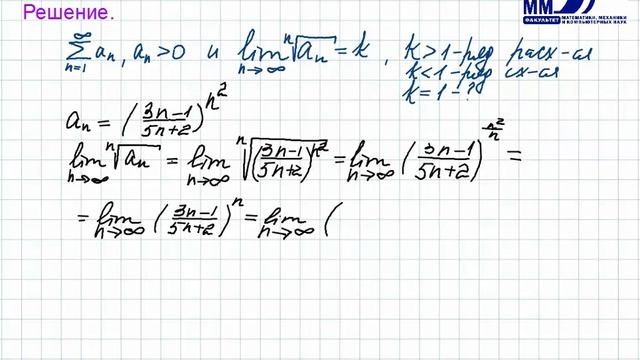 Решение.
ММ
ФАКУЛЬТЕТ МАТЕМАТИКИ, МЕХАНИКИ И КОМПЬЮТЕРНЫХ НАУК
∑_{n=1}^{∞} aₙ, aₙ>0 и lim_{n→∞} ⁿ√aₙ = k, k>1-ряд расх-ся
k<1-ряд сх-ся
k=1-?
aₙ = ((3n-1)/(5n+2))^{n²}
lim_{n→∞} ⁿ√aₙ = lim_{n→∞} ⁿ√(((3n-1)/(5n+2))^{n²}) = lim_{n→∞} ((3n-1)/(5n+2))^{n²/n} =
= lim_{n→∞} ((3n-1)/(5n+2))^n = lim_{n→∞} (